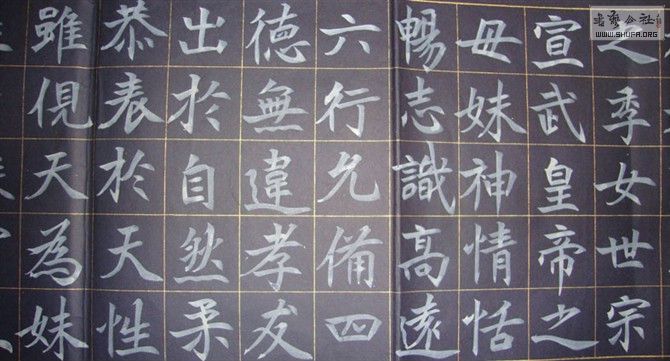 之季女世宗
宣武皇帝之
母妹神情恬
暢志識高遠
六行允備四
徳無違孝友
出於自然柔
恭表於天性
雖俔天為妹
書藝公社
WWW.SHUFA.ORG